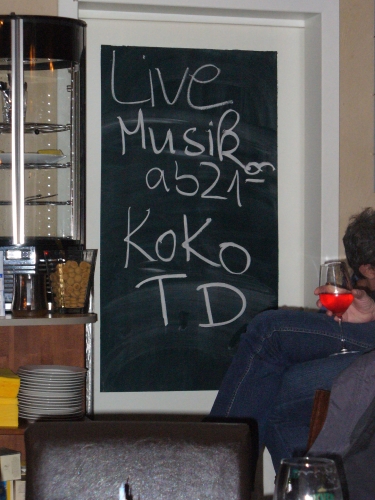 Live
Musik
ab 21⁰⁰
KoKo
TD